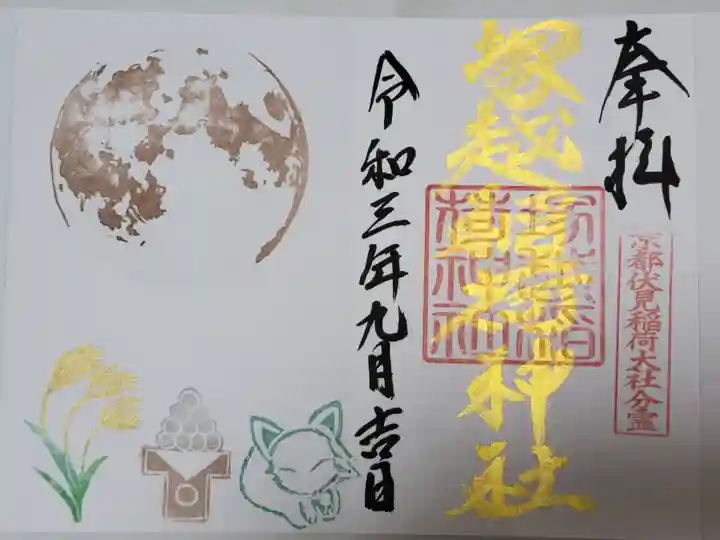 奉拝
京都伏見稲荷大社分霊
塚越稲荷神社
塚越稲
荷神社
令和三年九月吉日